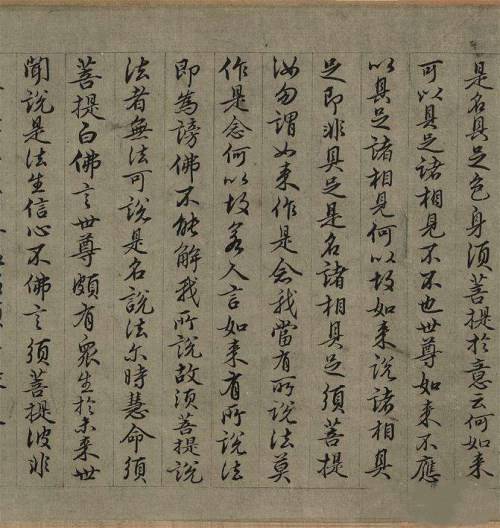 是名具足色身須菩提於意云何如来
可以具足諸相見不不也世尊如来不應
以具足諸相見何以故如来說諸相具
足即非具足是名諸相具足須菩提
汝勿謂如来作是念我當有所說法莫
作是念何以故若人言如来有所說法
即爲謗佛不能解我所說故須菩提說
法者無法可說是名說法尒時慧命須
菩提白佛言世尊頗有衆生於未来世
聞說是法生信心不佛言須菩提彼非